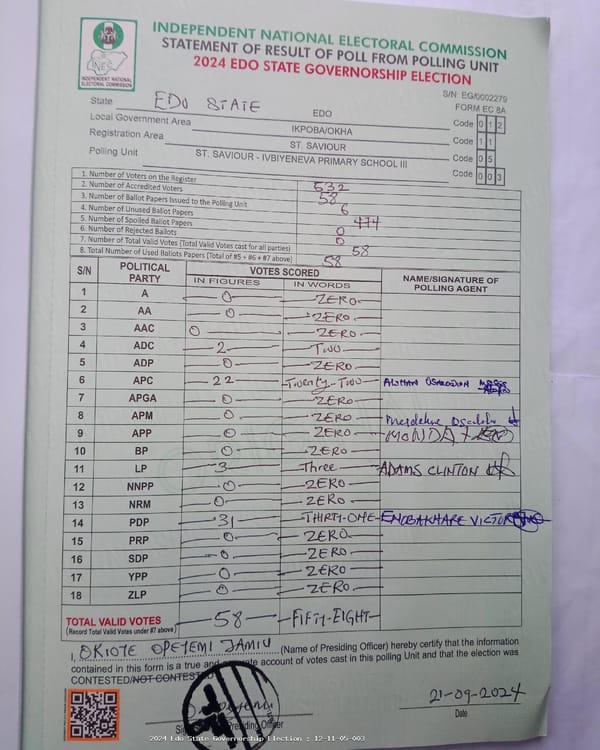 INDEPENDENT NATIONAL ELECTORAL COMMISSION
STATEMENT OF RESULT OF POLL FROM POLLING UNIT
2024 EDO STATE GOVERNORSHIP ELECTION
INEC
INDEPENDENT NATIONAL ELECTORAL COMMISSION
S/N: EG/0002279
FORM EC 8A
State EDO STATE EDO Code 0 1 2
Local Government Area IKPOBA/OKHA Code 1 1
Registration Area ST. SAVIOUR Code 0 5
Polling Unit ST. SAVIOUR - IVBIYENEVA PRIMARY SCHOOL III Code 0 0 3
1. Number of Voters on the Register 532
2. Number of Accredited Voters 58
3. Number of Ballot Papers Issued to the Polling Unit 6
4. Number of Unused Ballot Papers 474
5. Number of Spoiled Ballot Papers 0
6. Number of Rejected Ballots 0
7. Number of Total Valid Votes (Total Valid Votes cast for all parties) 58
8. Total Number of Used Ballots Papers (Total of #5 + #6 + #7 above) 58
S/N POLITICAL PARTY VOTES SCORED NAME/SIGNATURE OF POLLING AGENT
IN FIGURES IN WORDS
1 A 0 ZERO
2 AA 0 ZERO
3 AAC 0 ZERO
4 ADC 2 TWO
5 ADP 0 ZERO
6 APC 22 Twenty-Two
7 APGA 0 ZERO
8 APM 0 ZERO
9 APP 0 ZERO MONDAY
10 BP 0 ZERO
11 LP 3 Three ADAMS CLINTON
12 NNPP 0 ZERO
13 NRM 0 ZERO
14 PDP 31 THIRTY-ONE ENOBAKHARE VICTOR
15 PRP 0 ZERO
16 SDP 0 ZERO
17 YPP 0 ZERO
18 ZLP 0 ZERO
TOTAL VALID VOTES 58 FIFTY-EIGHT
(Record Total Valid Votes under #7 above)
I, OKIOTE OPEYEMI JAMIU (Name of Presiding Officer) hereby certify that the information
contained in this form is a true and account of votes cast in this polling Unit and that the election was
CONTESTED/NOT CONTESTED
21-09-2024
Presiding Officer Date
2024 Edo State Governorship Election : 12-11-05-003